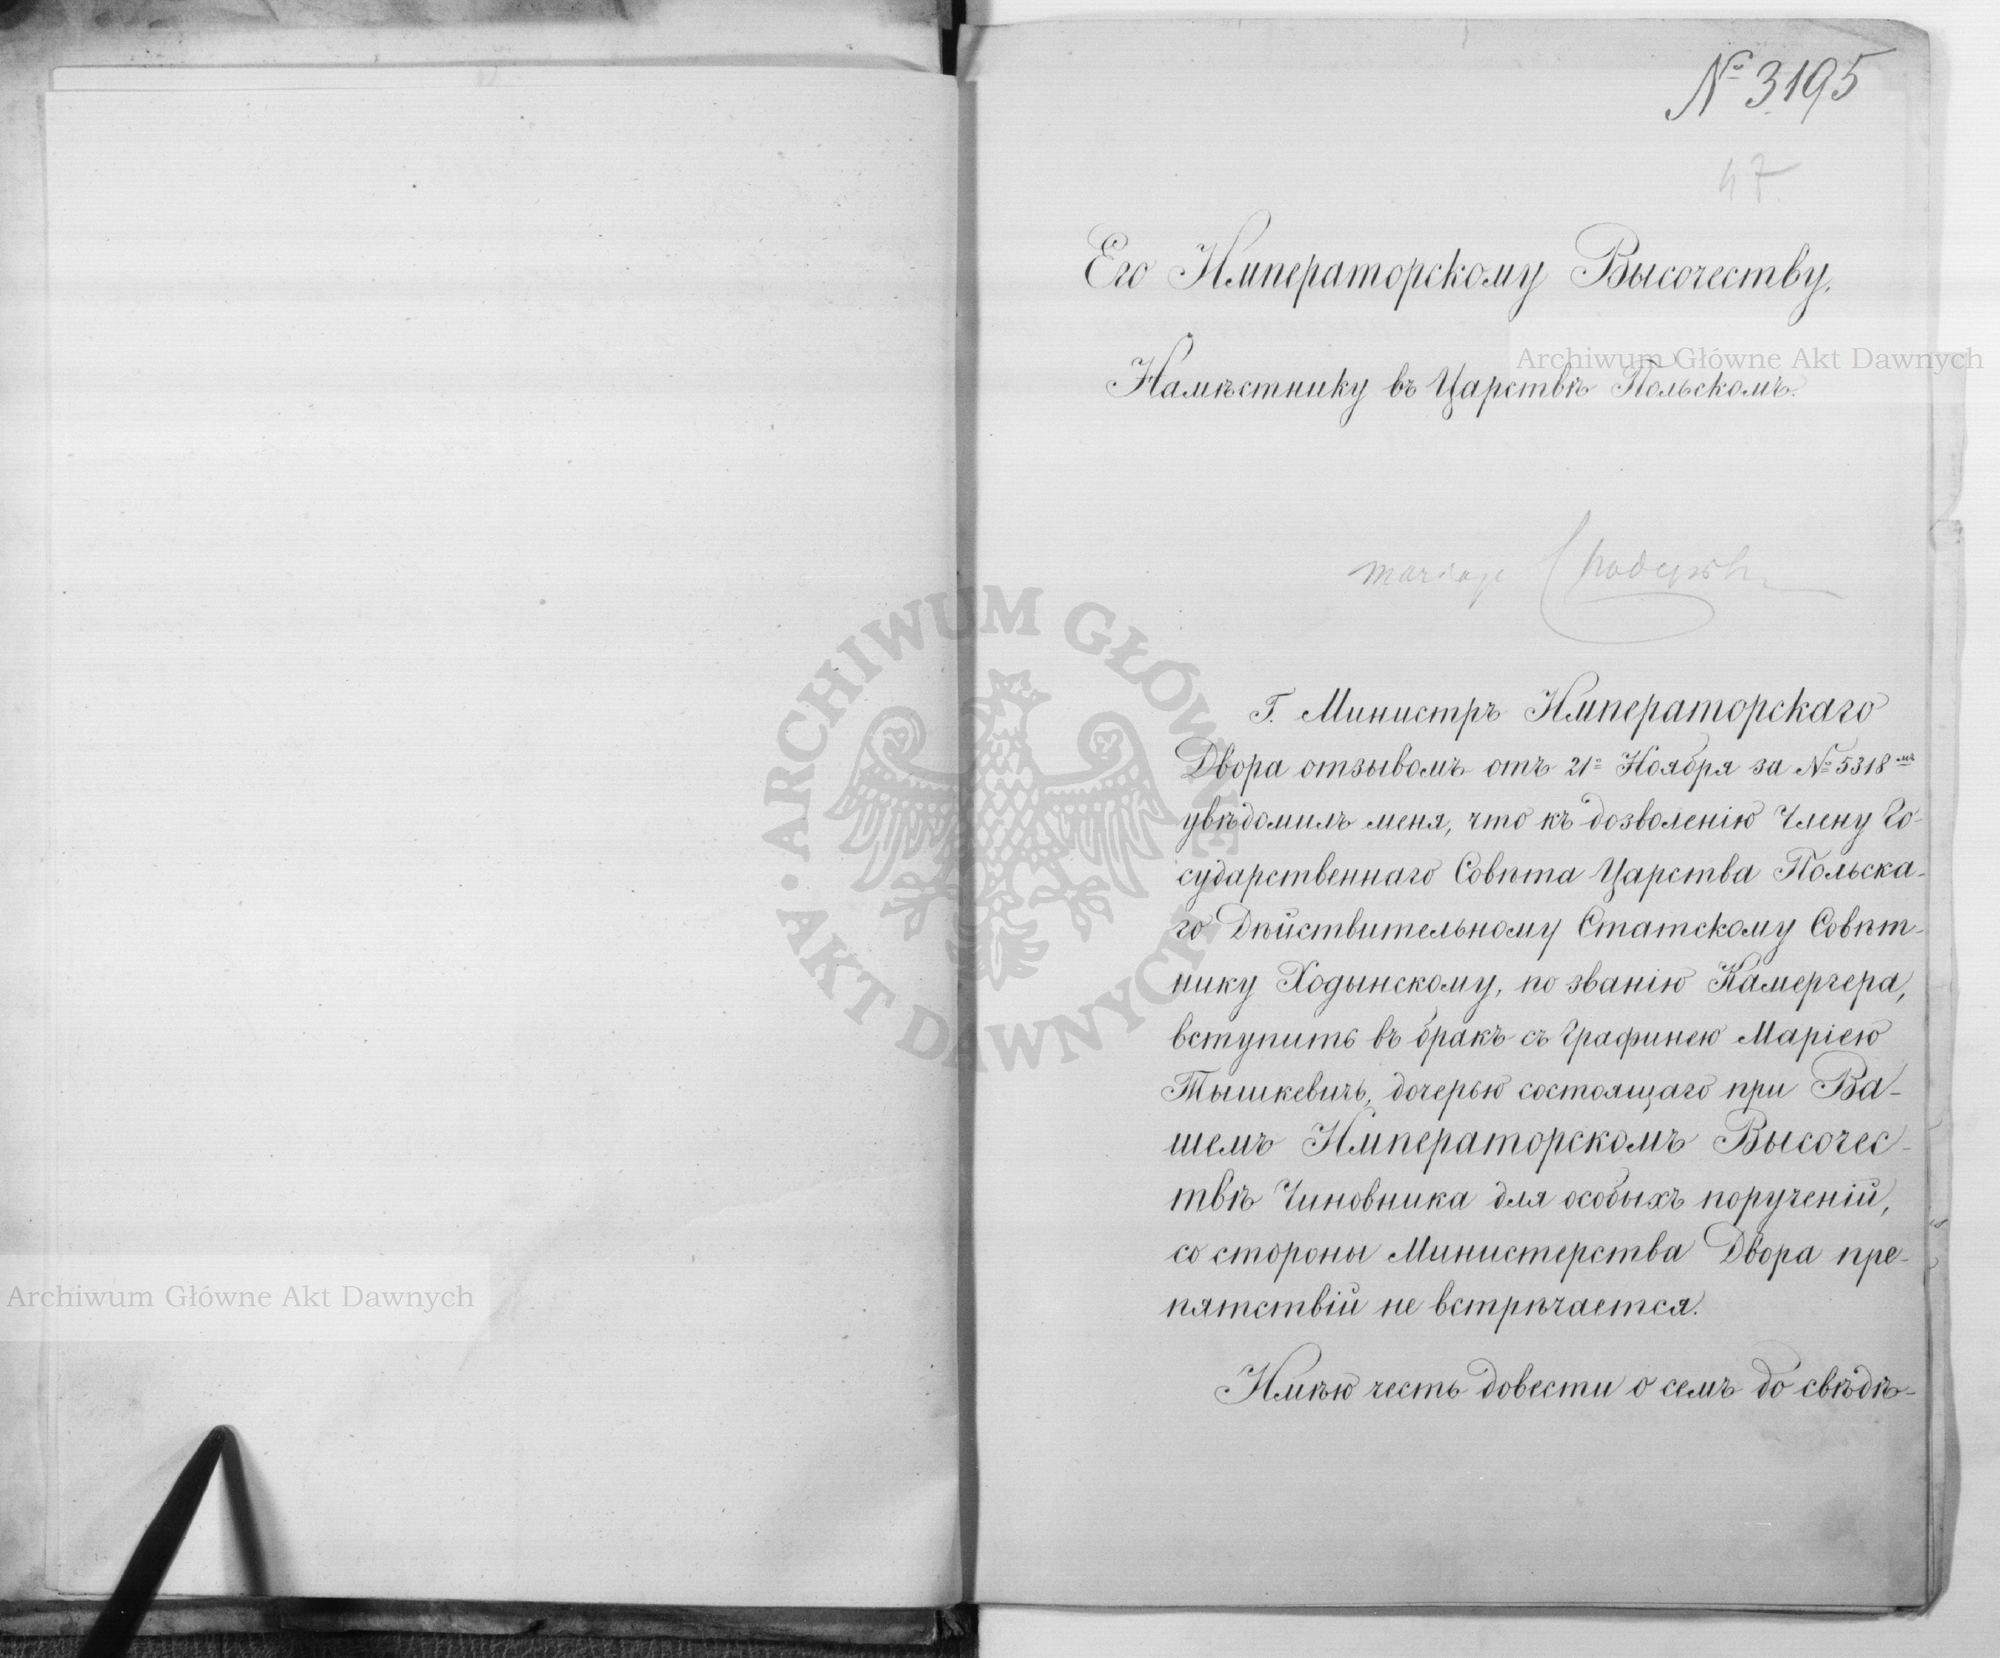 № 3195
47
Его Императорскому Высочеству,
Намѣстнику въ Царствѣ Польскомъ.
Archiwum Główne Akt Dawnych
mariage
ARCHIWUM GŁÓWNE AKT DAWNYCH
Г. Министръ Императорскаго
Двора отзывомъ отъ 21го Ноября за № 5318мъ
увѣдомилъ меня, что къ дозволенію Члену Го-
сударственнаго Совѣта Царства Польска-
го Дѣйствительному Статскому Совѣт-
нику Ходынскому, по званію Камергера,
вступить въ бракъ съ Графинею Маріею
Тышкевичъ, дочерью состоящаго при Ва-
шемъ Императорскомъ Высочес-
твѣ Чиновника для особыхъ порученій,
со стороны Министерства Двора пре-
пятствій не встрѣчается.
Имѣю честь довести о семъ до свѣдѣ-
Archiwum Główne Akt Dawnych